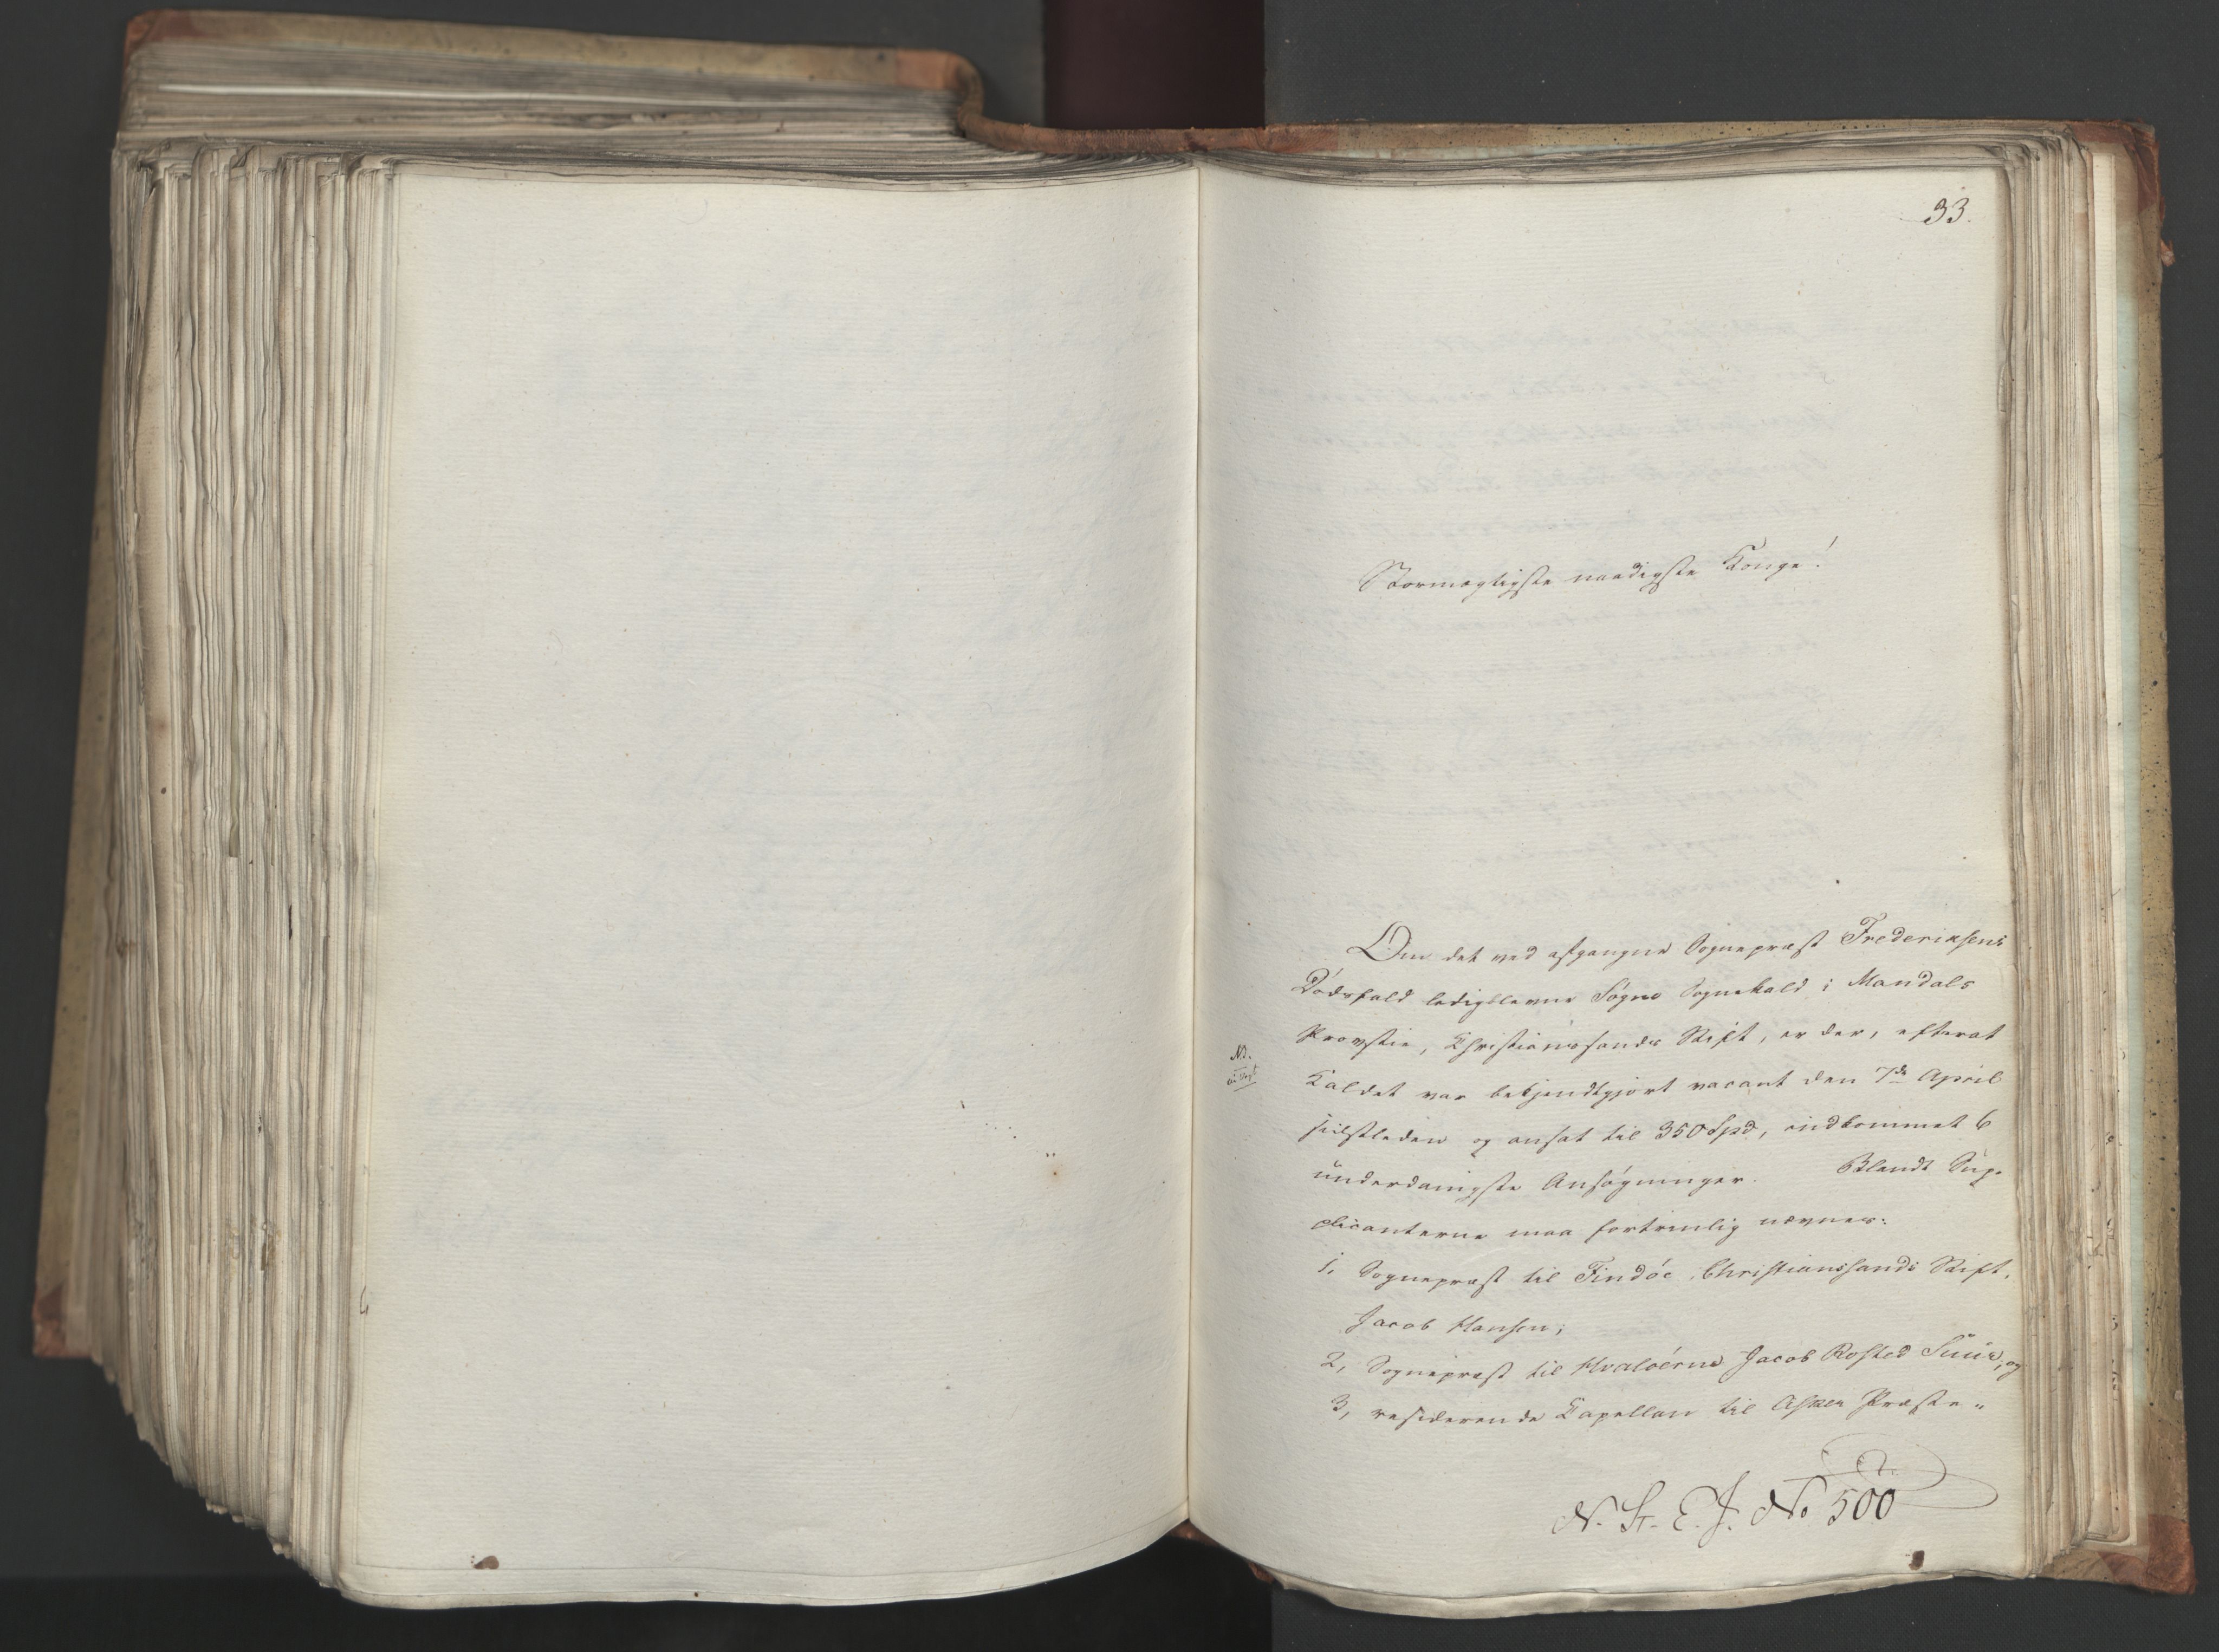 33.
Stormægtigste naadigste Konge!
Om det ved afgangne Sognepræst Frederiksens
Dødsfald ledigblevne Søgne Sognekald i Mandals
Provstie, Christianssands Stift, er der, efterat
Kaldet var bekjendtgjort vacant den 7de April
sidstleden og ansat til 350 Spd, indkommet 6
underdanigste Ansøgninger. Blandt Sup-
plicanterne maa fortrinlig nævnes:
1, Sognepræst til Findöe, Christianssands Stift,
Jacob Hansen;
2, Sognepræst til Hvalöerne Jacob Rosted Suur, og
3, residerende Kapellan til Asker Præste-
N. St. E. J. No 500